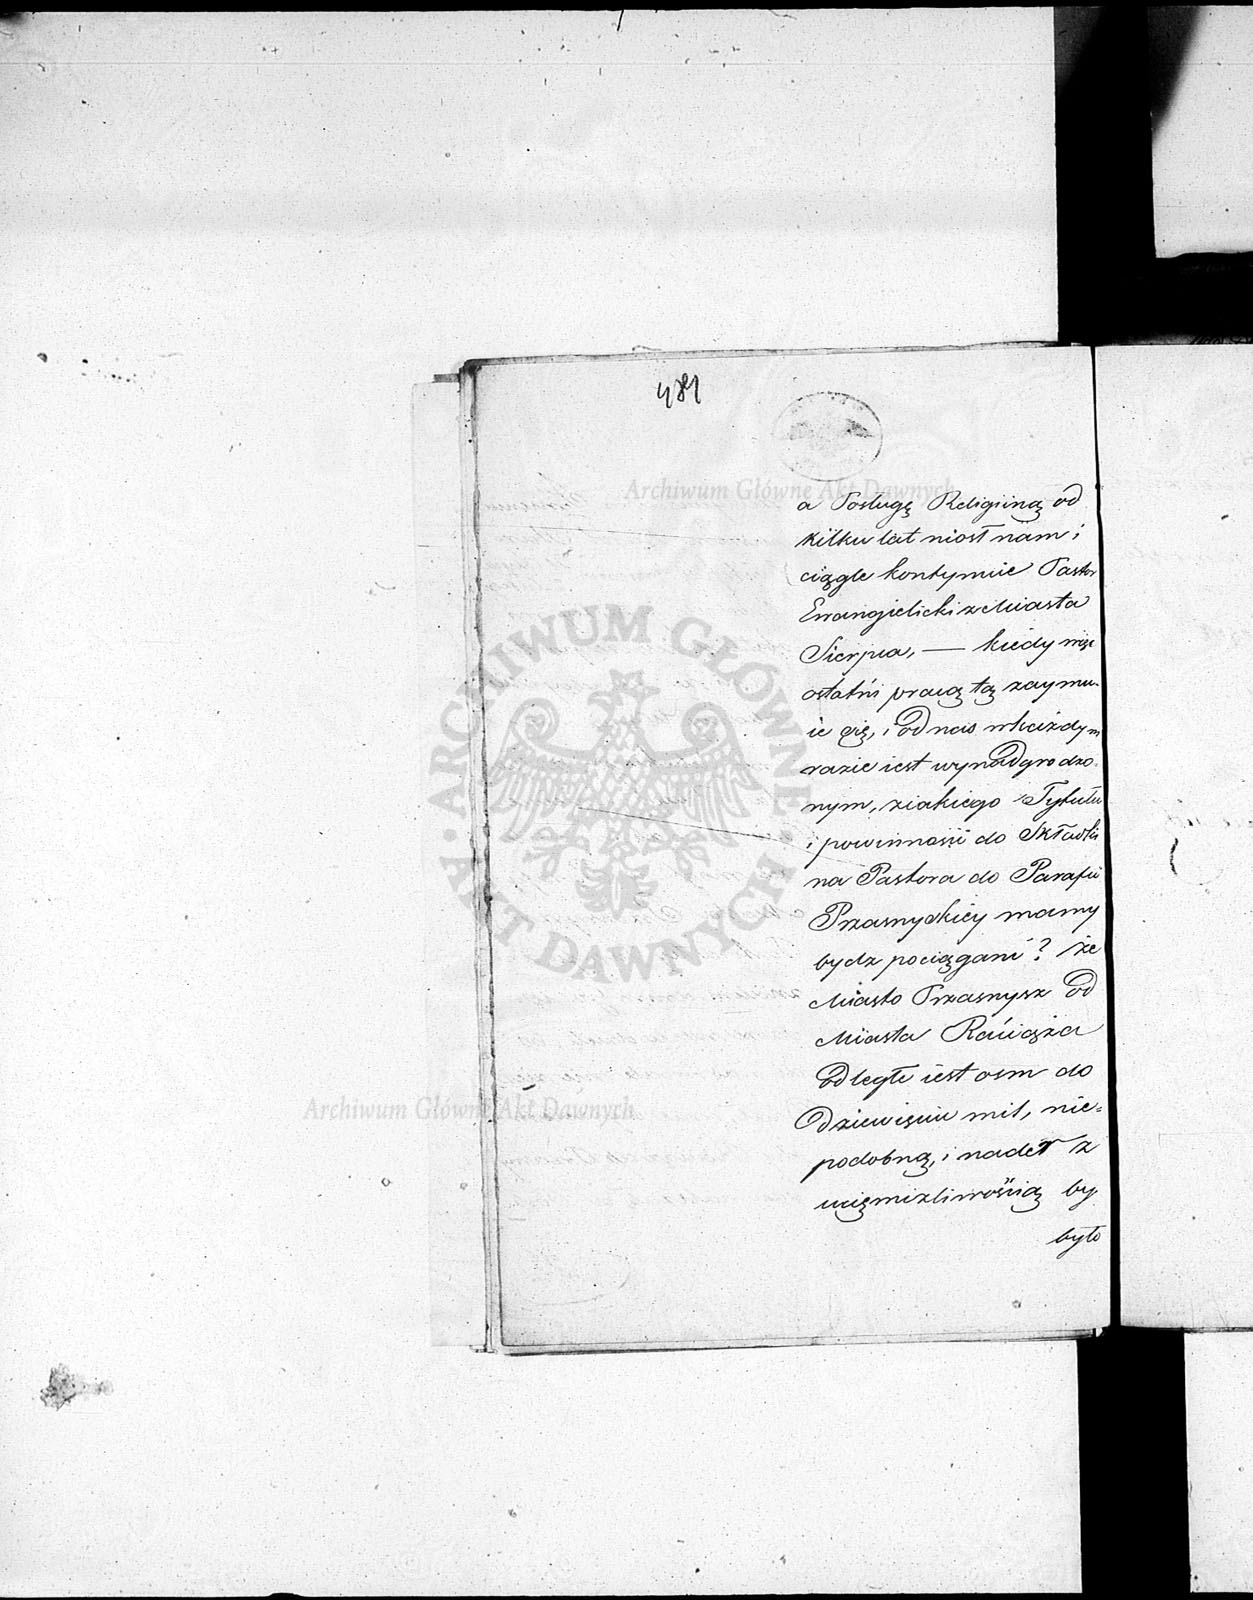 481
Archiwum Główne Akt Dawnych
a Posługę Religiiną od
kilku lat niosł nam i
ciągle kontynuie Pastor
Ewangielicki z Miasta
Sierpca, — kiedy więc
ostatni pracą tą zaymu-
ie się, i od nas w każdym
razie iest wynadgrodzo-
nym, z iakiego Tytułu
i powinności do Składki
na Pastora do Parafii
Przasnyskiey mamy
bydz pociągani? że
Miasto Przasnysz od
Miasta Raciąża
odległe iest osm do
dziewięciu mil, nie-
podobną, i nader z
ucięmizliwością by
było
ARCHIWUM GŁÓWNE AKT DAWNYCH
Archiwum Główne Akt Dawnych